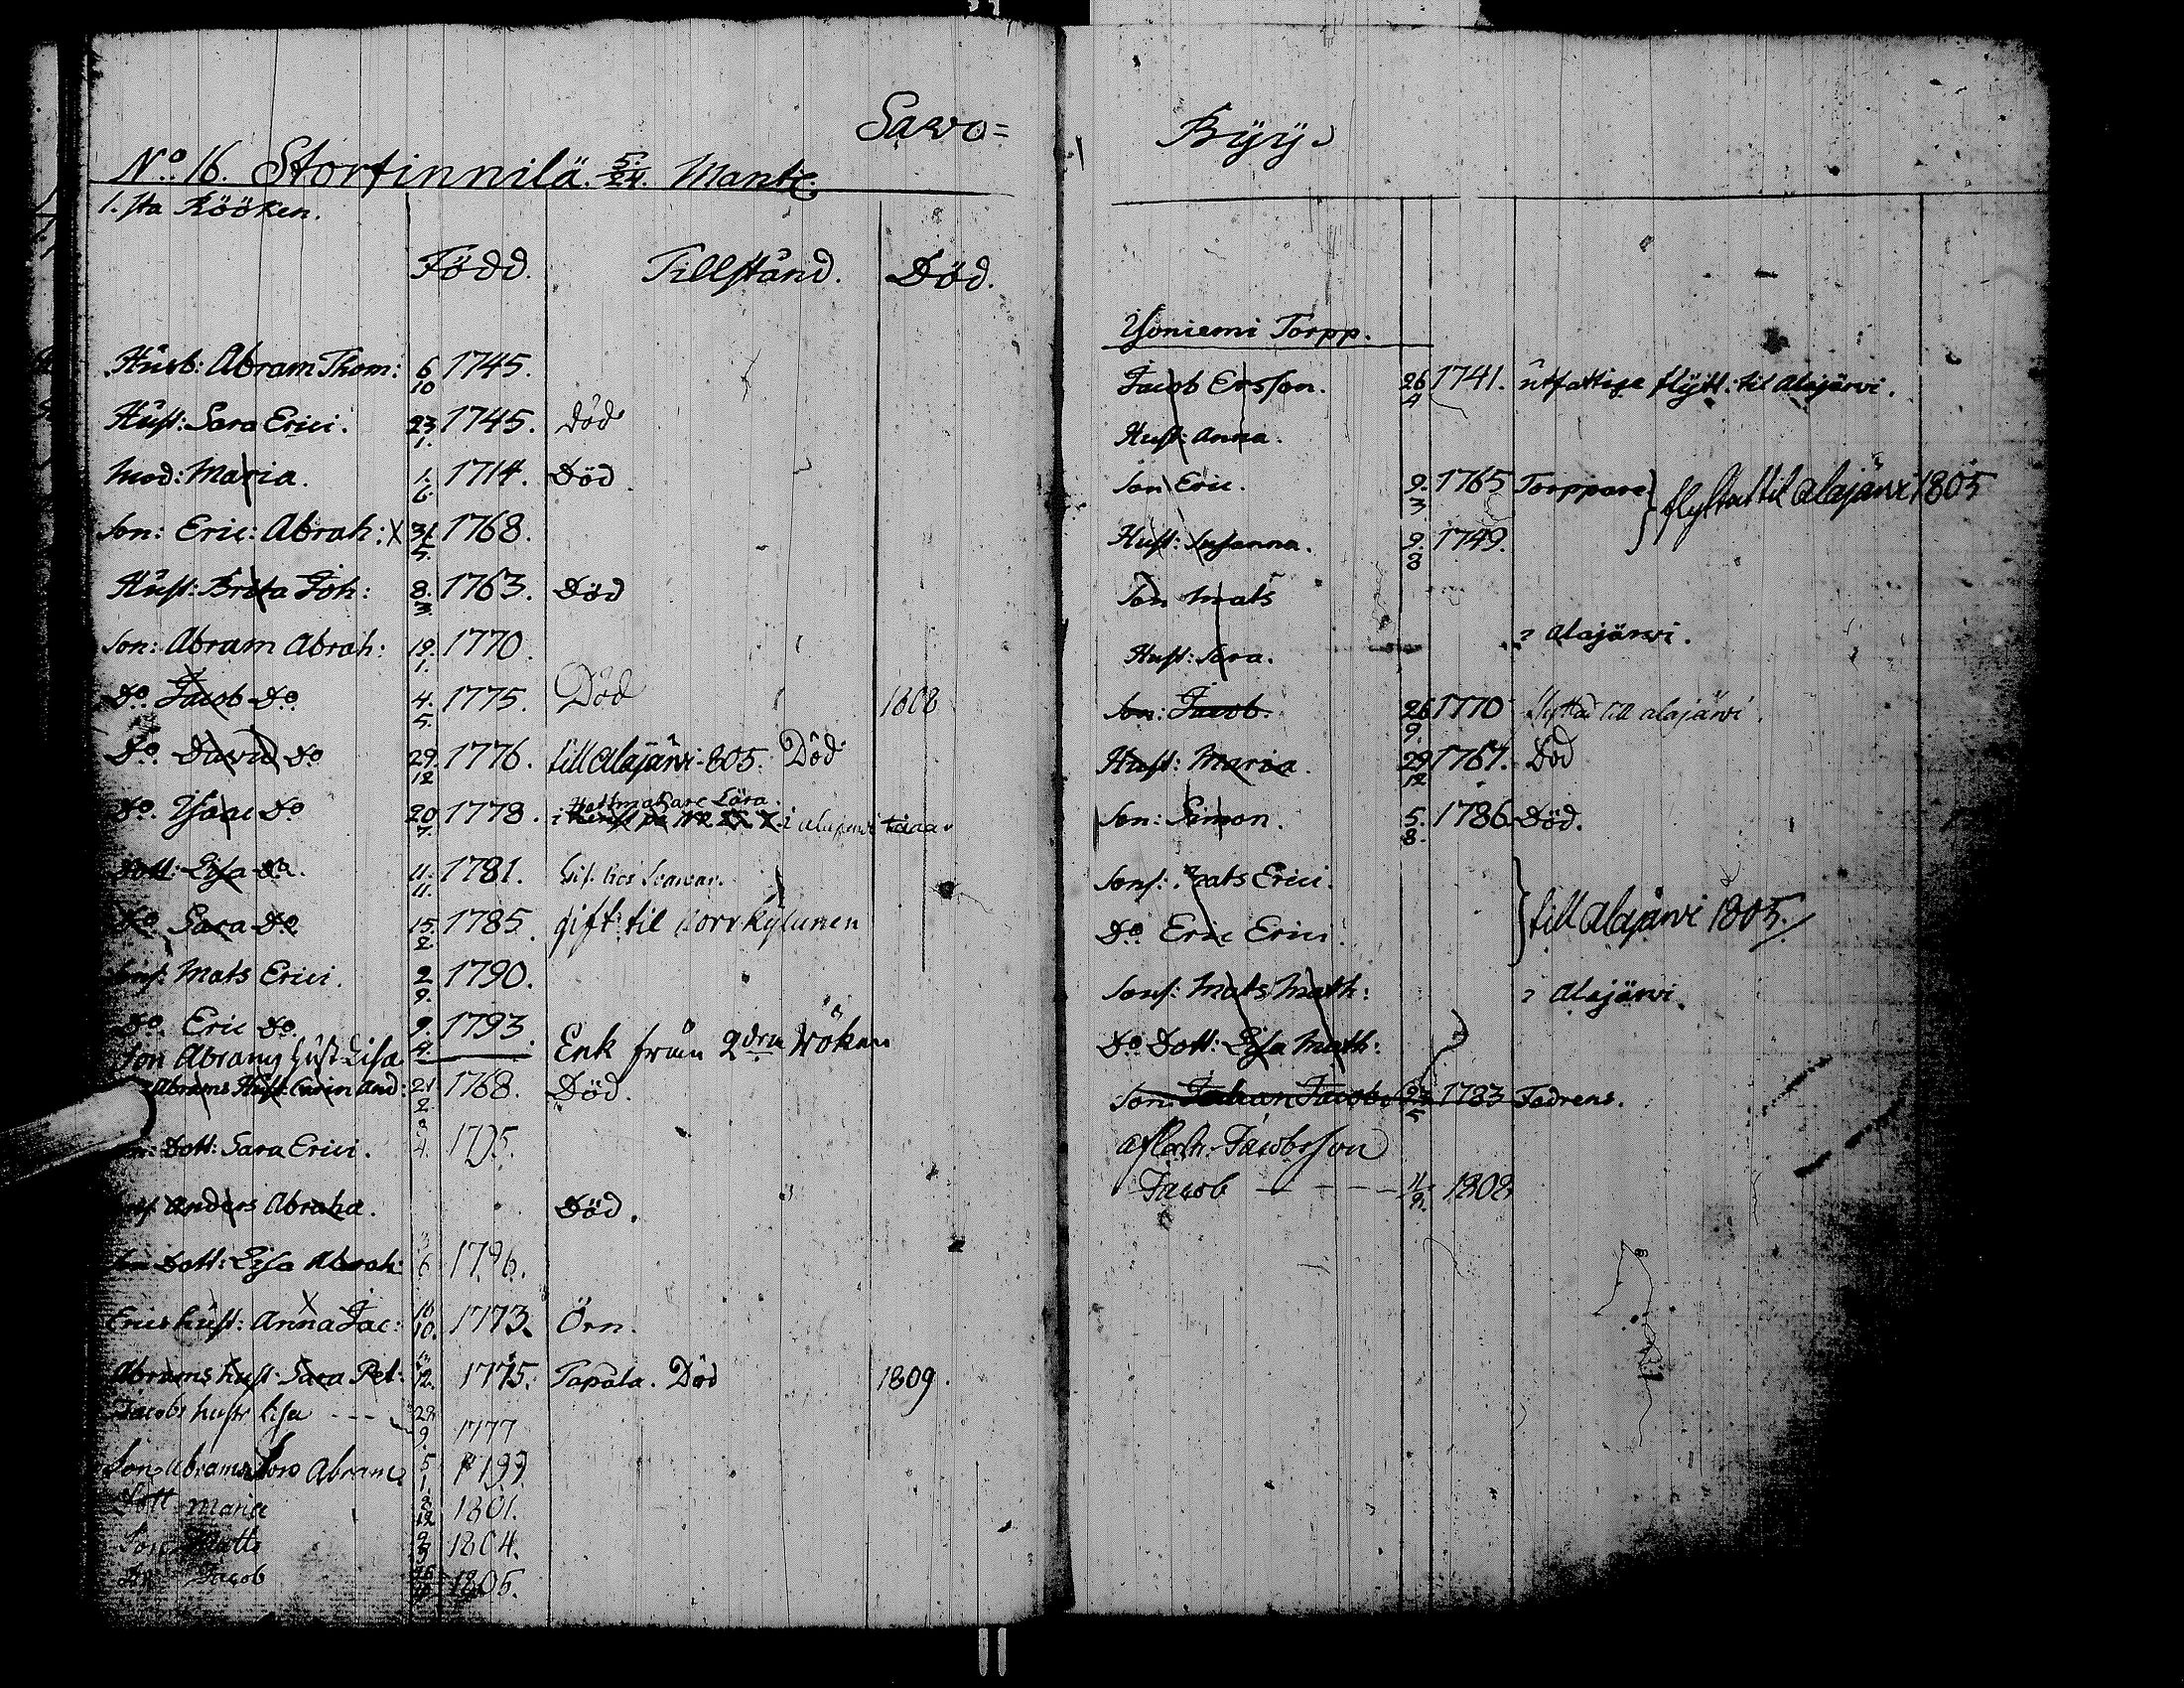 Sawo=
No. 16. Storfinnilä. 5/24. Mantl:
1.sta Rööken.
Född. Tillstånd. Död.
Husb: Abram Thom: 6/10 1745.
Hust: Sara Erici. 23/1. 1745. Död
Mod: Maria. 1./6. 1714. Död
Son: Eric: Abrah: X 31/5. 1768.
Hust: Brita Joh: 8./3. 1763. Död
Son: Abram Abrah: 19./1. 1770.
Do. Jacob Do. 4./5. 1775. Död 1808
Do. David Do 29./12 1776. till Alajärwi 805. Död
Do. Isaac Do 20/7. 1778. Hattmakare Lära.
i tienst på i alajerwi
Dott: Lisa Do. 11./11. 1781.
Do Sara Do 15./2. 1785. gift til
Sons. Mats Erici. 2/9. 1790.
Do. Eric Do. 9./4. 1793.
Son Abrams Hust Lisa Enk från 2dra Röken
Abrams Hust: Carin And: 21/2. 1768. Död.
Dott: Sara Erici. 4. 1795.
Anders Abraha. Död.
Son Dott: Lisa Abrah: 6 1796.
Erics hust: Anna Jac: 16/10. 1773. Örn.
Abrams hust: Sara Pet: 12. 1775. Tapala. Död 1809.
Jacobs hustr Lisa - - - 28/9. 1777
Son Abrams Son Abram 5/1. 1799
Dott Maria 8/12 1801.
Son Matts 9/3 1804.
Do Jacob 1805.
Byy.
Yoniemi Torpp.
Jacob Ersson. 26/4 1741. utfattige flytt: til Alajärwi.
Hust: Anna.
Son Eric. 9./3. 1765 Torppare } flyttat til Alajärwi 1805
Hust: Susanna. 9./8 1749.
Son Mats
Alajärwi.
Hust: Sara.
Son: Jacob. 26/9. 1770 flyttad till alajärwi.
Hust: Maria. 29/12 1767. Död
Son: Simon. 5./8. 1786 Död.
Sons: Mats Erici.
} till Alajärwi 1805.
Do Eric Erici.
Sons: Mats Math: Alajärwi.
Do Dott: Lisa Math:
Son: Johan Jacobs 23/5 1783 Fadrens.
Jacobsson
Jacob - - - - 11/9. 1808